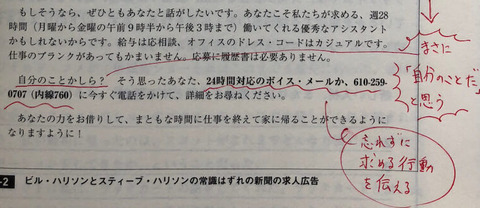 もしそうなら、ぜひともあなたと話がしたいです。あなたこそ私たちが求める、週28
時間（月曜から金曜の午前９時半から午後３時まで）働いてくれる優秀なアシスタント
かもしれないからです。給与は応相談、オフィスのドレス・コードはカジュアルです。
仕事のブランクがあってもかまいません。応募に履歴書は必要ありません。
自分のことかしら？　そう思ったあなた、24時間対応のボイス・メールか、610-259-
0707（内線760）に今すぐ電話をかけて、詳細をお尋ねください。
あなたの力をお借りして、まともな時間に仕事を終えて家に帰ることができるように
なりますように！
-2　ビル・ハリソンとスティーブ・ハリソンの常識はずれの新聞の求人広告
まさに
「自分のことだ」
と思う
忘れずに
求める行動
を伝える